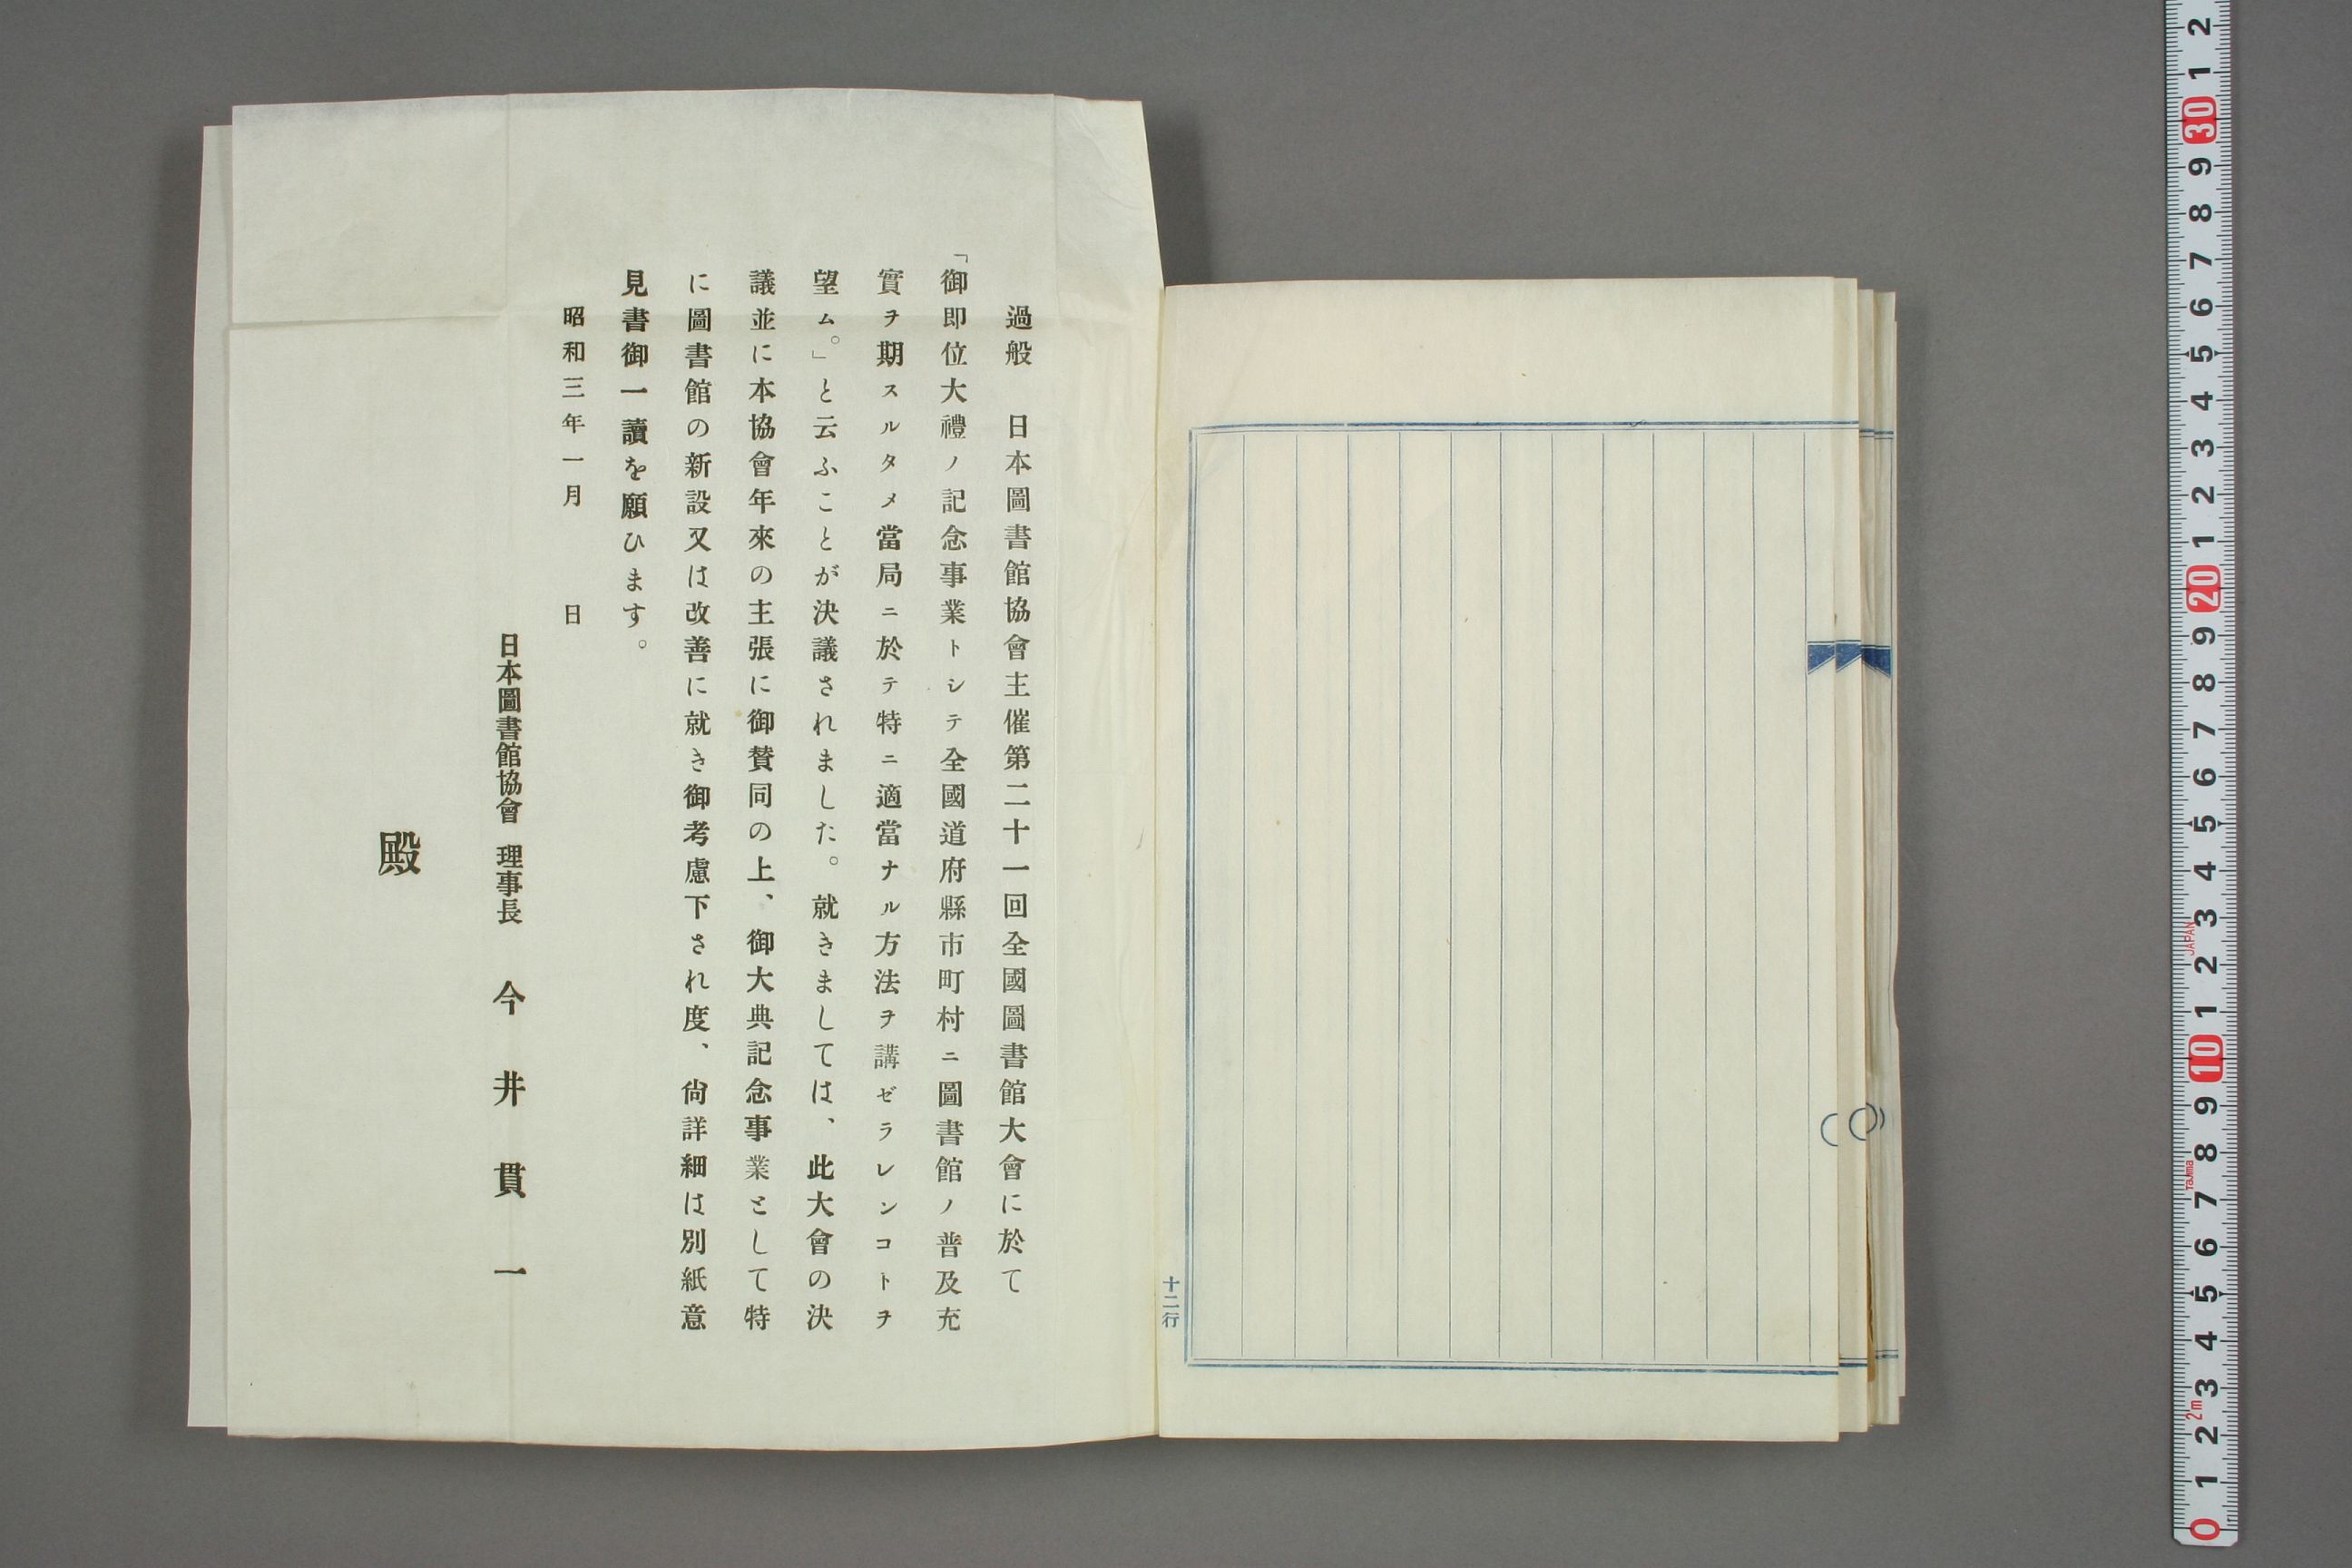 過般　日本圖書館協會主催第二十一回全國圖書館大會に於て
「御即位大禮ノ記念事業トシテ全國道府縣市町村ニ圖書館ノ普及充
實ヲ期スルタメ當局ニ於テ特ニ適當ナル方法ヲ講ゼラレンコトヲ
望ム。」と云ふことが決議されました。就きましては、此大會の決
議並に本協會年來の主張に御賛同の上、御大典記念事業として特
に圖書館の新設又は改善に就き御考慮下され度、尙詳細は別紙意
見書御一讀を願ひます。
昭和三年一月　　日
日本圖書館協會 理事長　今井貫一
殿
十二行
2
1
30
9
8
7
6
5
4
3
2
1
20
9
8
7
6
5
4
3
JAPAN
2
1
10
9
8
Tajima
7
6
5
4
3
2m
2
1
0